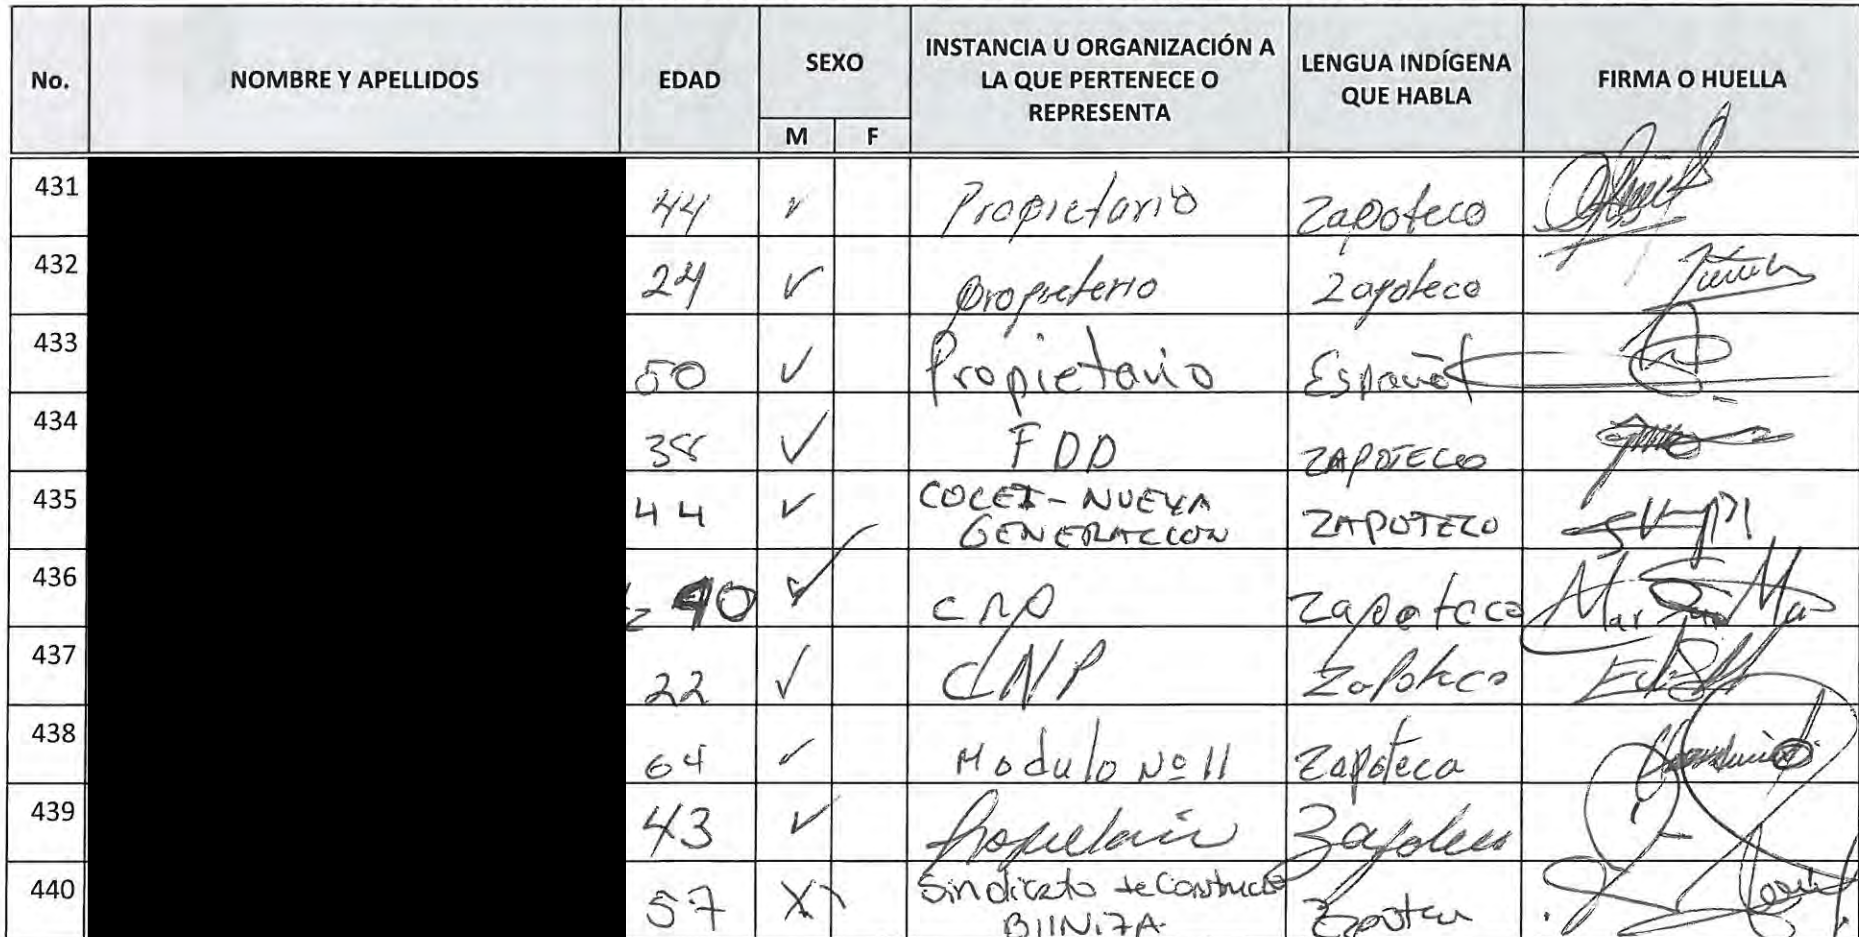 No. NOMBRE Y APELLIDOS EDAD SEXO M F INSTANCIA U ORGANIZACIÓN A LA QUE PERTENECE O REPRESENTA LENGUA INDÍGENA QUE HABLA FIRMA O HUELLA
431 44 ✓ Propietario Zapoteco
432 24 ✓ propieterio Zapoteco
433 50 ✓ Propietario Español
434 38 ✓ FDD ZAPOTECO
435 44 ✓ COCEI - NUEVA
GENERACCION ZAPOTECO
436 90 ✓ cnp Zapoteco
437 22 ✓ CNP Zapoteco
438 64 ✓ Modulo Nº 11 Zapoteca
439 43 ✓ Propietario Zapoteco
440 57 X Sindicato de
BIINIZA